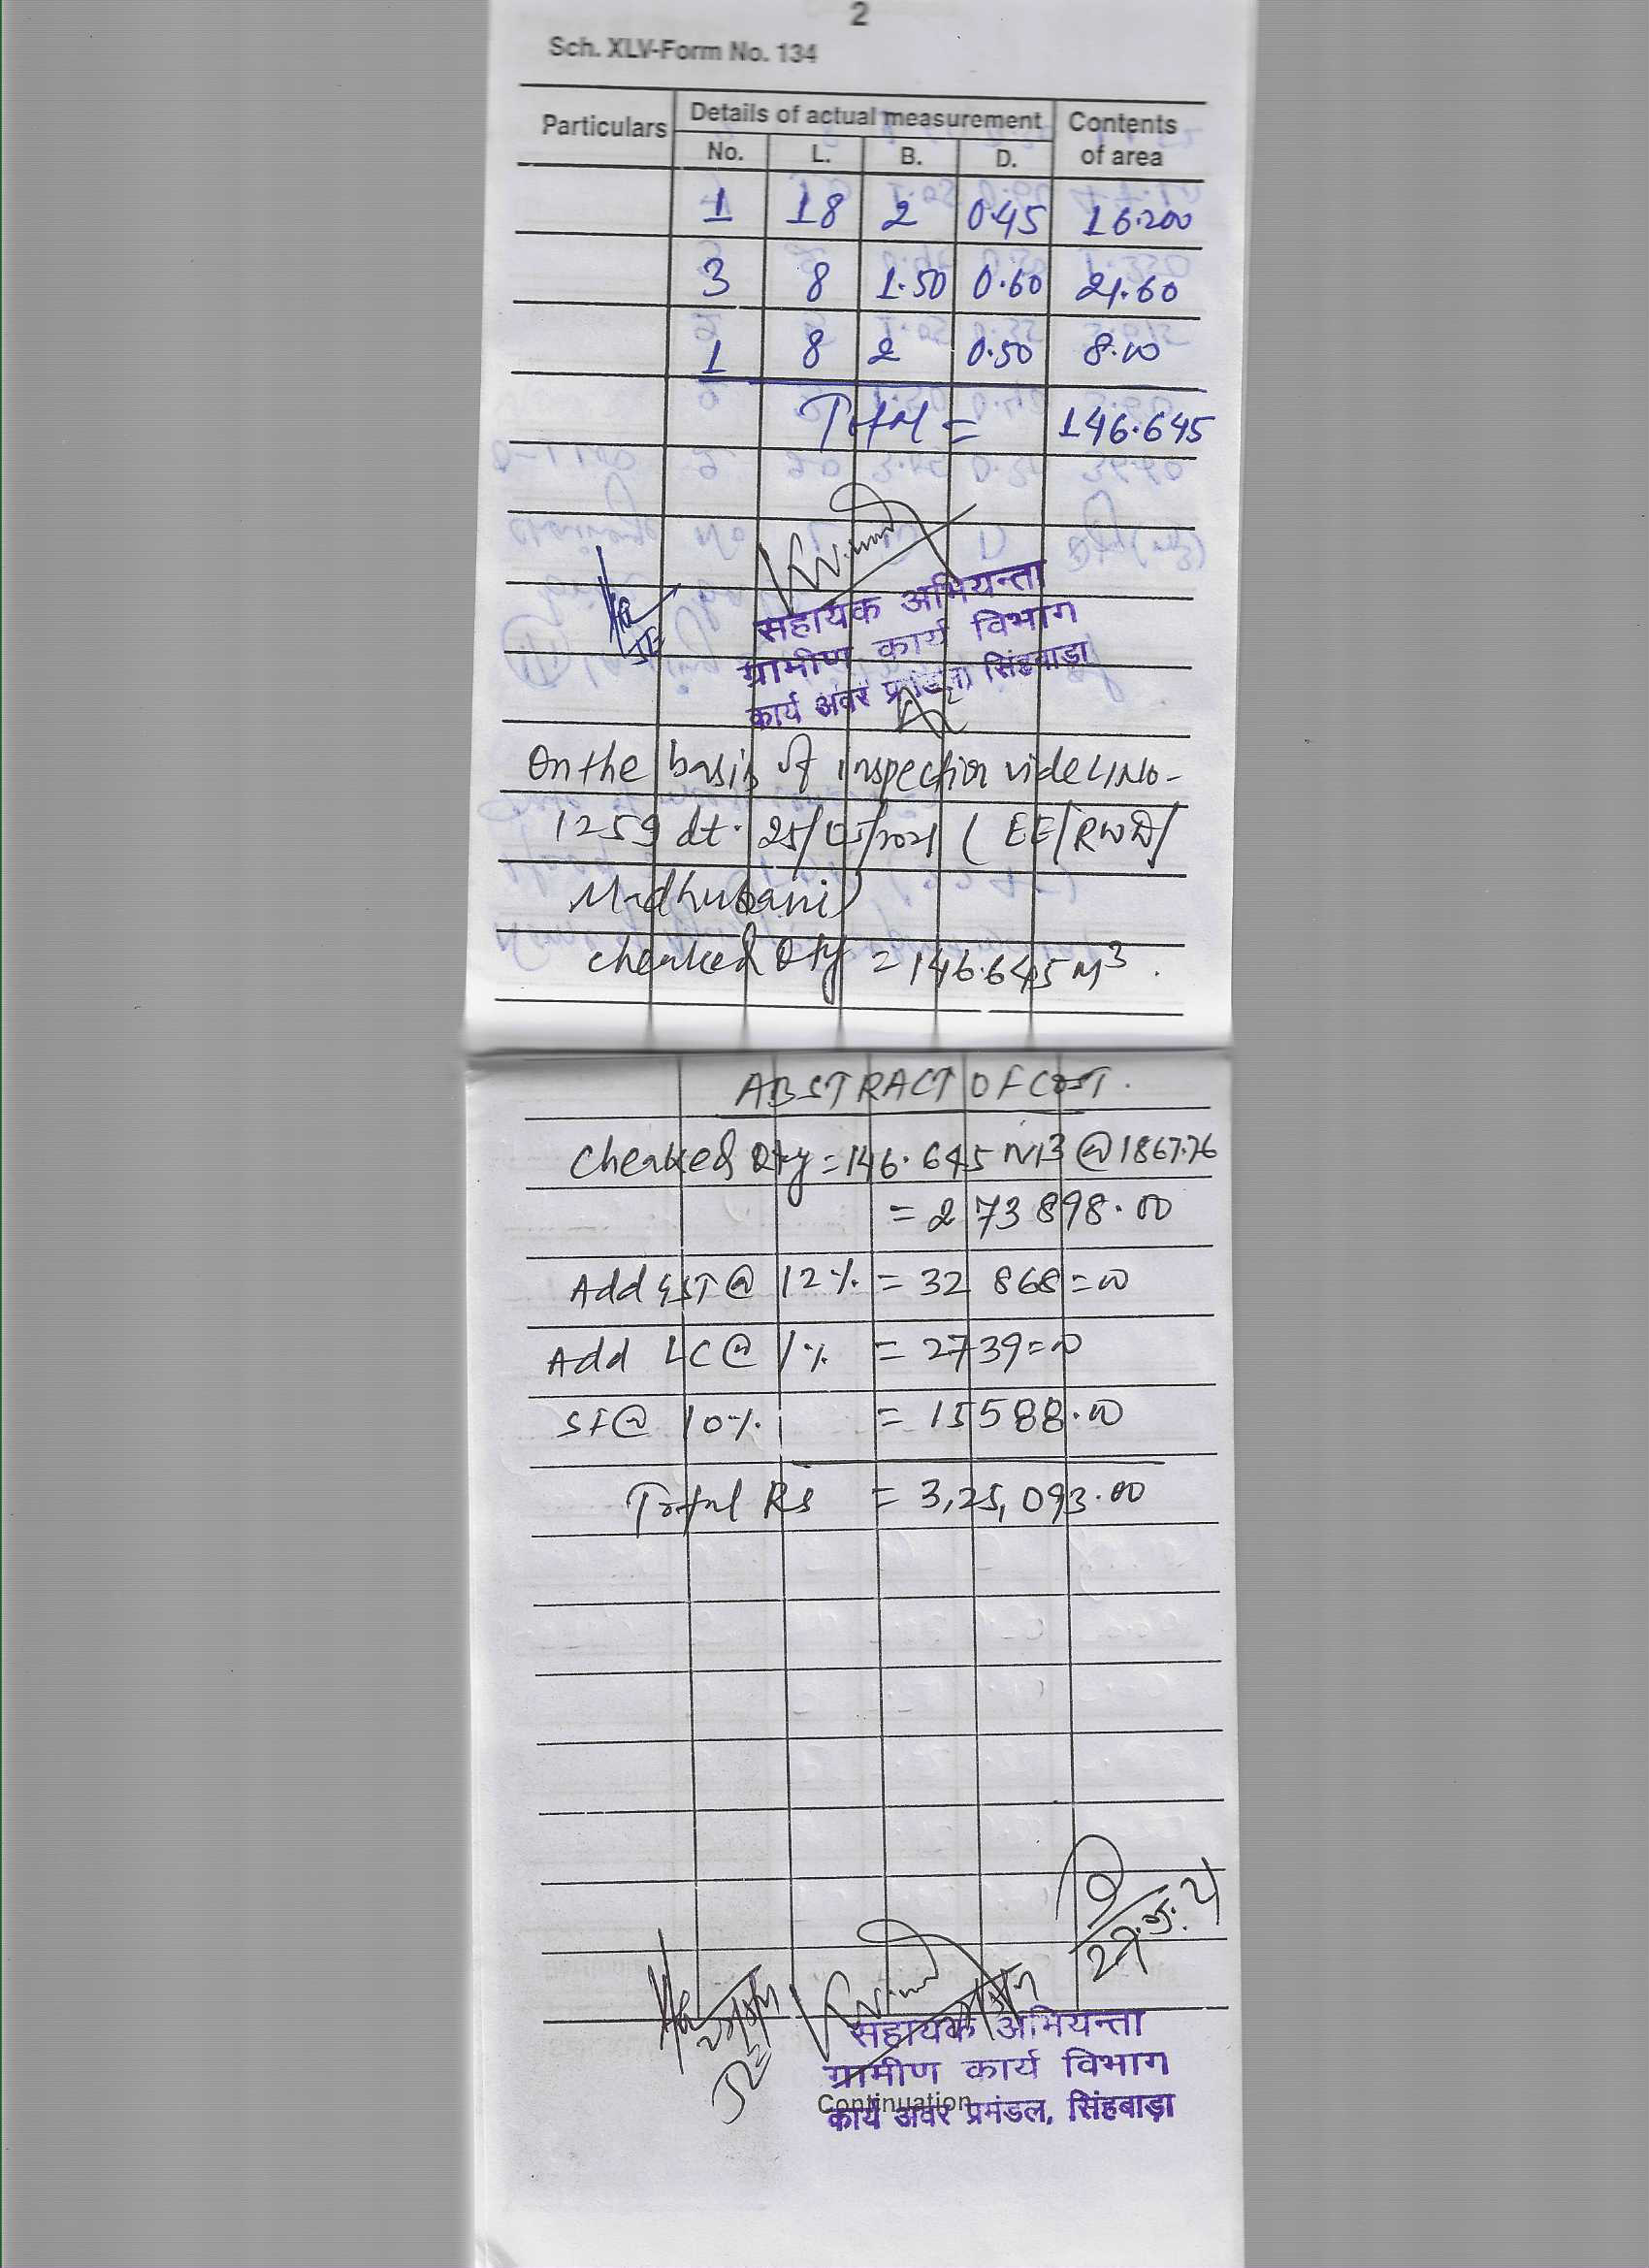 2
Sch. XLV-Form No. 134
Particulars Details of actual measurement Contents of area
No. L. B. D.
1 18 2 0.45 16.200
3 8 1.50 0.60 21.60
1 8 2 0.50 8.00
Total = 146.645
सहायक अभियन्ता
ग्रामीण कार्य विभाग
कार्य अवर प्रमंडल, सिंहवाड़ा
On the basis of inspection vide L/No-
1259 dt. 25/05/2021 (EE/RWD/
Madhubani)
checked Qty = 146.645 M3.
ABSTRACT OF COST.
Checked Qty = 146.645 M3 @ 1867.76
= 273898.00
Add GST @ 12% = 32868=00
Add LC @ 1% = 2739=00
SF@ 10% = 15588.00
Total Rs = 3,25,093.00
JE
सहायक अभियन्ता
ग्रामीण कार्य विभाग
Continuation
कार्य अवर प्रमंडल, सिंहबाड़ा